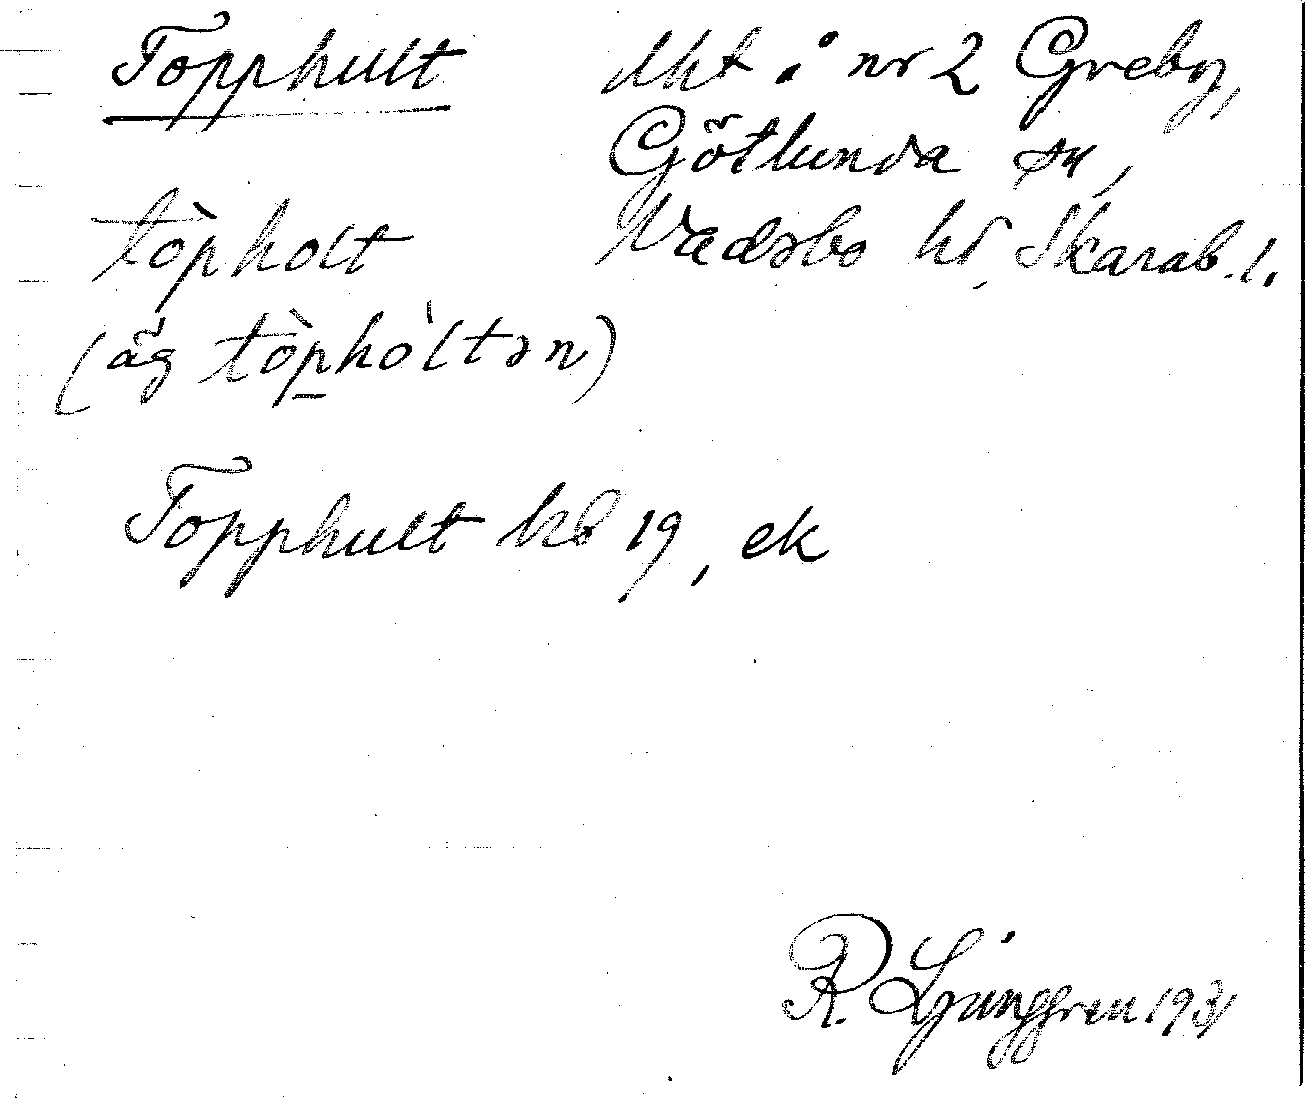 Topphult
lht i nr 2 Greby,
Götlunda sn,
Vadsbo hd, Skarab. l.
tòpholt
(äg tòphòltən)
Topphult hb 19, ek
R. Ljunggren 1931